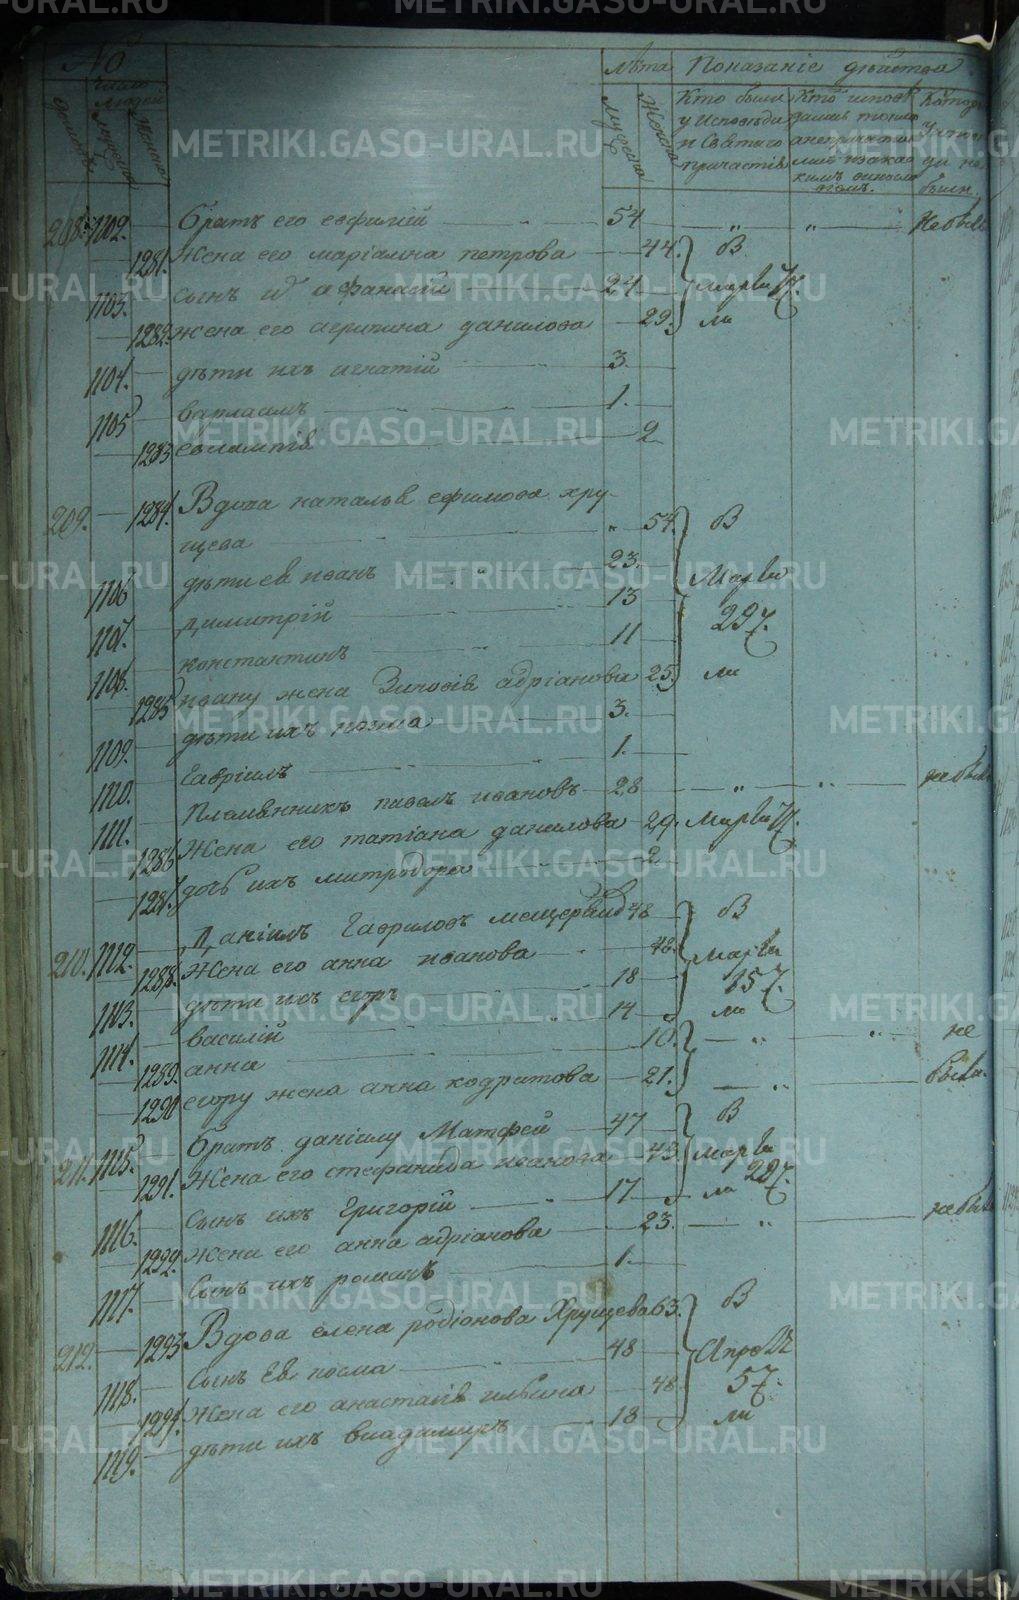 №
Лѣта Показаніе дѣйства
Домовъ Число Людей Мужска Женска Мужска Женска
Кто были у Исповѣди и Святаго причастія
Не были
208. 1102. Братъ его 54 " " Не были
1281. Жена его маріамна петрова 44. В
1103. сынъ афанасій 24 марта 17.
1282. жена его агрипина данилова 29. ли
1104. дѣти ихъ игнатій 3.
1105 варлаамъ 1.
1283 евлампія 2
209. 1284. Вдова наталья ефимова хру-
щева " 54. В
1106 дѣти ея иванъ 23. Марта
1107. димитрій 13 29 7.
1108. константинъ 11
1285 ивану жена Зиновія адріанова 25. ли
1109. дѣти ихъ козма 3.
1110. гавріилъ 1.
1111. Племянникъ павелъ ивановъ 28 " " не были
1286 Жена его татіана данилова 29. Марта 17.
1287. дочь ихъ митродора 2
210. 1112. Даніилъ Гавриловъ 48 В
1288. Жена его анна иванова 48. Марта
1113. дѣти ихъ егоръ 18 15 7.
1114. василій 14 ли
1289. анна 10. " " не
1290 егору жена анна кодратова 21. " были.
211. 1115. Братъ даніилу Матфей 47 В
1291. Жена его стефанида иванова 43. марта 29 7.
1116. Сынъ ихъ Григорій 17 ли
1292. Жена его анна адріанова 23. " не были
1117. Сынъ ихъ романъ 1.
212. 1293 Вдова елена родіонова Хрущева 63. В
1118. Сынъ Ея козма 48 Апрѣля
1294. Жена его анастасія ильина 48. 5 7.
1119. дѣти ихъ владимиръ 18 ли
METRIKI.GASO-URAL.RU